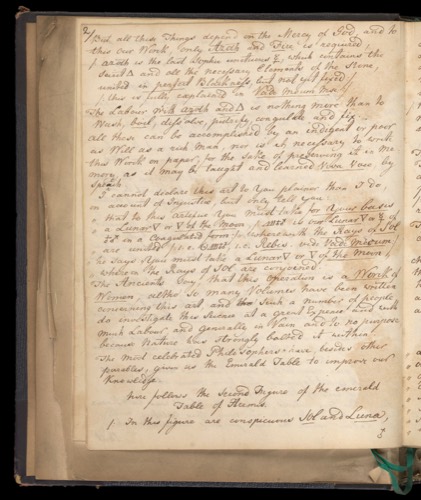 2/ But all these Things depend on the Mercy of God and to
this our Work, only Azoth and Fire is required,
/ Azoth is the last Sophic which contains the
△ and all the necessary Elements of the Stone,
united in perfect Blackness, but not yet fixed /
/ this is fully explained in Vade mecum
The Labour with Azoth and △ is nothing more than to
Wash, boil, dissolve, putrefy, congulate and fix.
all these can be accomplished by an indigent or poor
as Well as a rich Man, nor is it necessary to write
this Work on paper, for the sake of preserving it in Me
mory, as it may be taught and learned Viva Voce, by
Speech
I cannot declare this Art to You plainer than I do,
on account of Injustice, but only tell you
that to this Arcanum You must take for Your basis
a Lunar ▽ or ▽ of the Moon,
in a Congulated form wherewith the Rays of Sol
are united, Rebis. vide Vade mecum /
he says You must take a Lunar ▽ or ▽ of the Moon
wherein the Rays of Sol are conjoined.
The Ancients Say, that this operation is a Work of
Women, altho' So many Volumes have been written
concerning this art, and Such a number of people
do investigate this Science at a great Expence and with
much Labour, and generally in Vain and to no purpose
because Nature was Strongly bolted it within.
The most celebrated Philosophers have besides other
parables, given us the Emerald Table to improve our
Knowledge.
here follows the Second Figure of the emerald
Table of Hermes.
1. In this figure are conspicuous Sol and Luna,